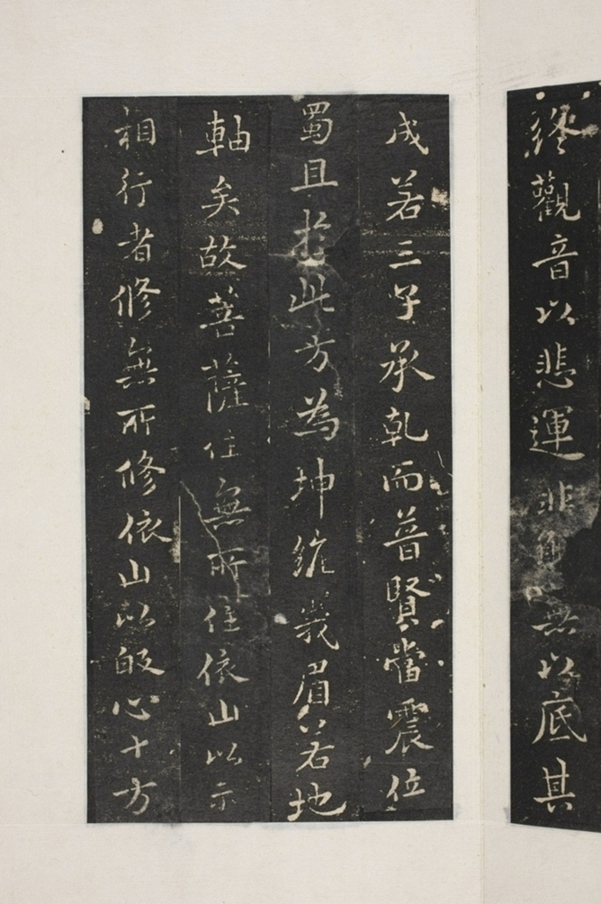 終觀音以悲運非無以底其
成若三子承乾而普賢當震位
蜀且於此方為坤維峩眉若地
軸矣故菩薩住無所住依山以示
相行者修無所修依山以皈心十方